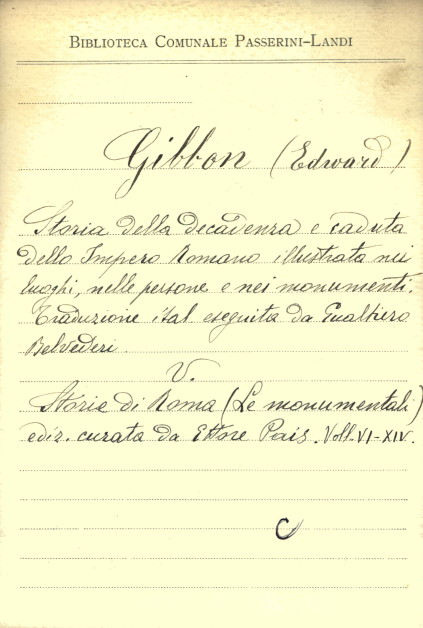 BIBLIOTECA COMUNALE PASSERINI-LANDI
Gibbon (Edward)
Storia della decadenza e caduta
dello Impero Romano illustrata nei
luoghi, nelle persone e nei monumenti.
Traduzione ital eseguita da Gualtiero
Belvederi
V.
Storie di Roma (Le monumentali)
ediz. curata da Ettore Pais. Voll. VI-XIV.
C